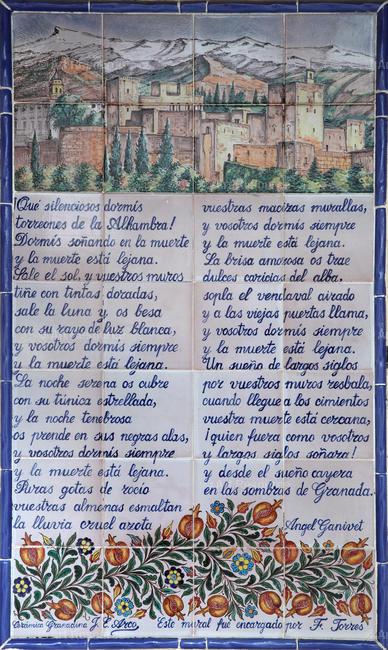 ¡Qué silenciosos dormís
torreones de la Alhambra!
Dormís soñando en la muerte
y la muerte está lejana.
Sale el sol, y vuestros muros
tiñe con tintas doradas,
sale la luna y os besa
con su rayo de luz blanca,
y vosotros dormís siempre
y la muerte está lejana.
La noche serena os cubre
con su túnica estrellada,
y la noche tenebrosa
os prende en sus negras alas,
y vosotros dormís siempre
y la muerte está lejana.
Puras gotas de rocío
vuestras almenas esmaltan
la lluvia cruel azota
vuestras macizas murallas,
y vosotros dormís siempre
y la muerte está lejana.
La brisa amorosa os trae
dulces caricias del alba,
sopla el vendaval airado
y a las viejas puertas llama,
y vosotros dormís siempre
y la muerte está lejana.
Un sueño de largos siglos
por vuestros muros resbala,
cuando llegue a los cimientos
vuestra muerte está cercana,
¡quien fuera como vosotros
y largos siglos soñara!
y desde el sueño cayera
en las sombras de Granada.
Angel Ganivet
Cerámica Granadina J. E. Arco, Este mural fué encargado por F. Torres